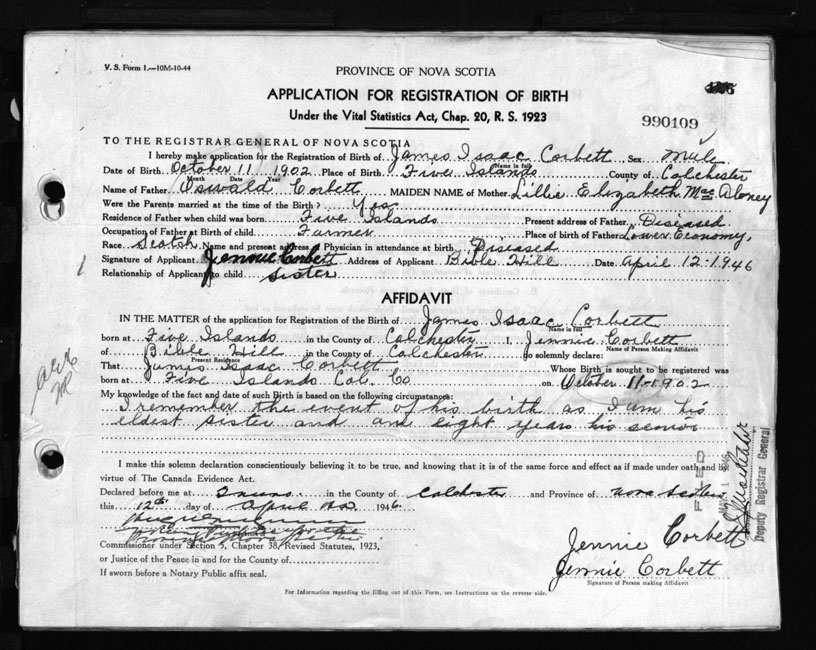 V. S. Form 1.—10M-10-44
PROVINCE OF NOVA SCOTIA
APPLICATION FOR REGISTRATION OF BIRTH
Under the Vital Statistics Act, Chap. 20, R. S. 1923
990109
TO THE REGISTRAR GENERAL OF NOVA SCOTIA
I hereby make application for the Registration of Birth of James Isaac Corbett Sex Male
Name in full
Date of Birth October 11 1902 Place of Birth Five Islands County of Colchester
Month Date Year
Name of Father Oswald Corbett MAIDEN NAME of Mother Lillie Elizabeth Mac Aloney
Were the Parents married at the time of the Birth? Yes
Residence of Father when child was born Five Islands Present address of Father Diseased
Occupation of Father at Birth of child Farmer Place of birth of Father Lower Economy,
Race Scotch Name and present address of Physician in attendance at birth Diseased
Signature of Applicant Jennie Corbett Address of Applicant Bible Hill Date April 12-1946
Relationship of Applicant to child sister
AFFIDAVIT
IN THE MATTER of the application for Registration of the Birth of James Isaac Corbett
Name in full
born at Five Islands in the County of Colchester I, Jennie Corbett
Name of Person Making Affidavit
of Bible Hill in the County of Colchester do solemnly declare:
Present Residence
That James Isaac Corbett Whose Birth is sought to be registered was
born at Five Islands Col. Co on October 11-1902
My knowledge of the fact and date of such Birth is based on the following circumstances:
I remember the event of his birth as I am his
eldest sister and am eight years his senior
I make this solemn declaration conscientiously believing it to be true, and knowing that it is of the same force and effect as if made under oath and by
virtue of The Canada Evidence Act.
Declared before me at Truro in the County of Colchester and Province of Nova Scotia
this 12th day of April 1946
Commissioner under Section 5, Chapter 38, Revised Statutes, 1923,
or Justice of the Peace in and for the County of
If sworn before a Notary Public affix seal.
Jennie Corbett
Jennie Corbett
Signature of Person making Affidavit
Deputy Registrar General
For Information regarding the filling out of this Form, see Instructions on the reverse side.